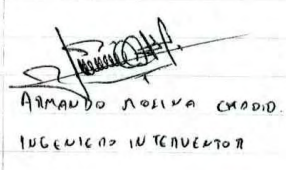 ARMANDO MOLINA CHADID.
INGENIERO INTERVENTOR